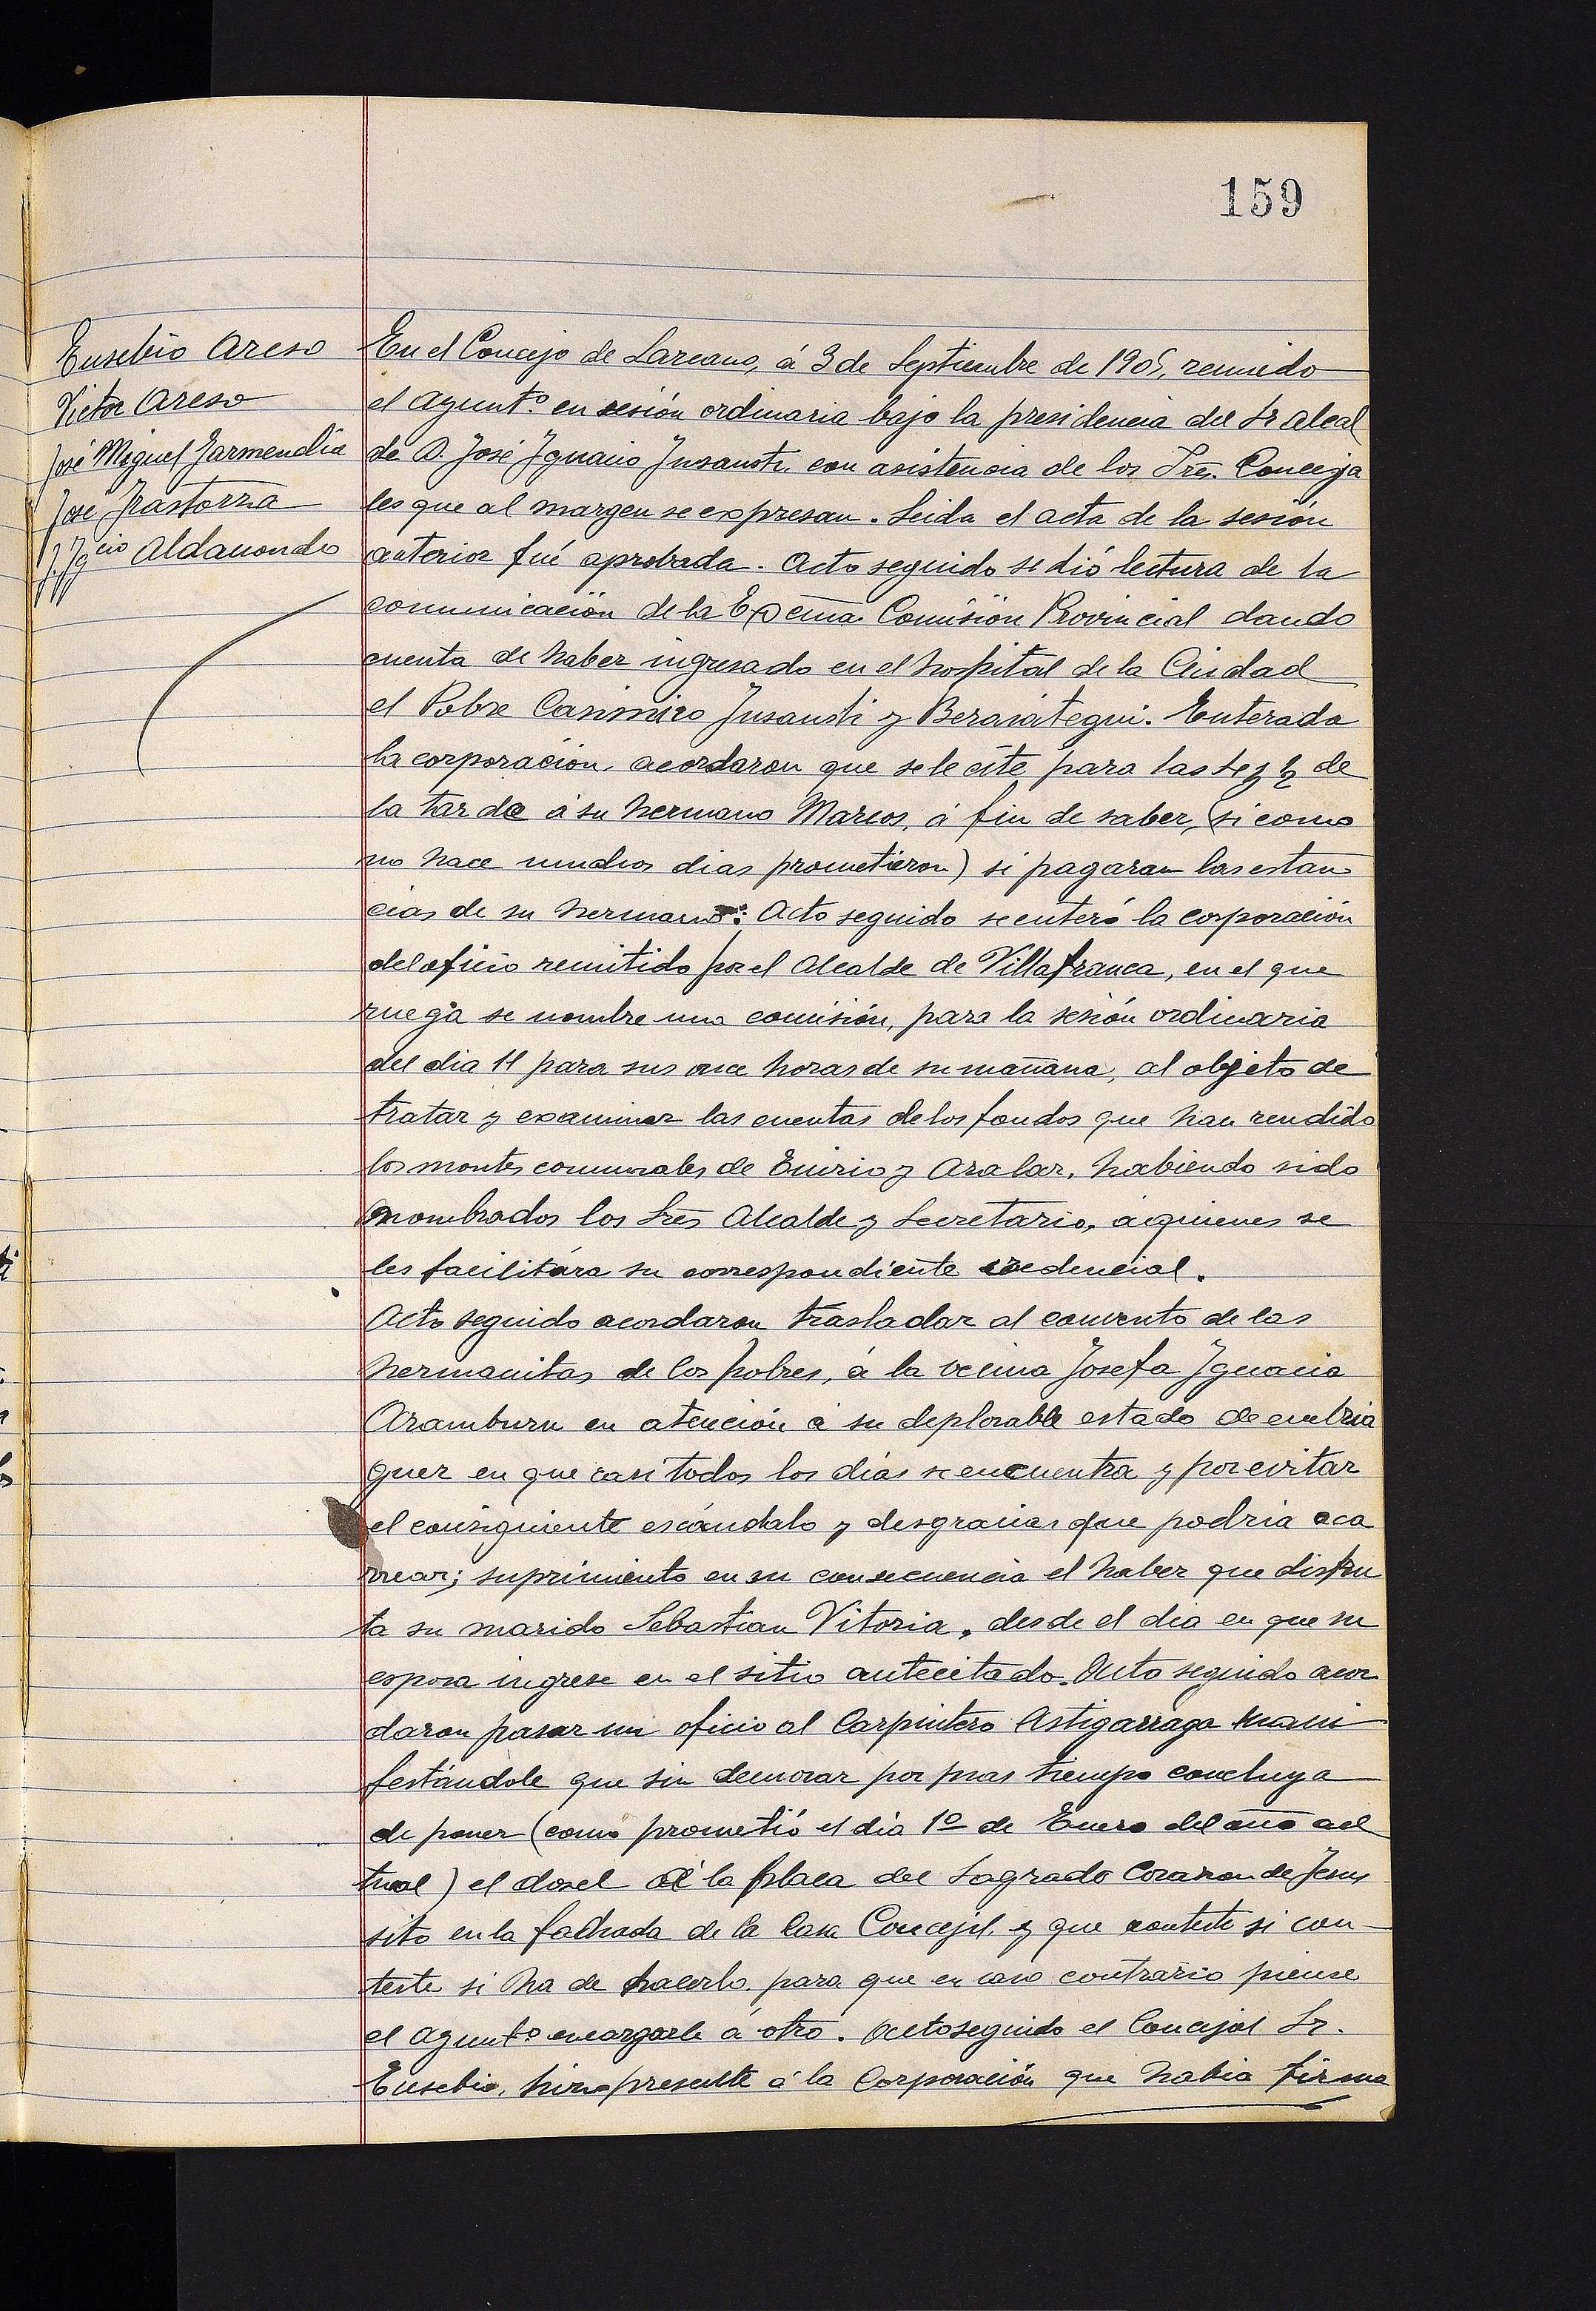 159
Eusebio Areso
Victor Areso
José Miguel Garmendia
José Irastorza
J. Ygcio Aldanondo
En el Concejo de Lazcano, á 3 de Septiembre de 1905, reunido
el Ayunt.o en sesión ordinaria bajo la presidencia del Sr Alcal
de D. José Ygnacio Insausti, con asistencia de los Sres. Conceja
les que al margen se expresan. Leida el acta de la sesión
anterior fué aprobada. Acto seguido se dió lectura de la
comunicación de la Excma. Comisión Provincial dando
cuenta de haber ingresado en el hospital de la Ciudad
el Pobre Casimiro Insausti y Berasategui. Enterada
la corporación, acordaron que se le cite para las de
la tarde á su hermano Marcos, á fin de saber, (si como
no hace muchos dias prometieron) si pagaran las estan
cias de su hermano: Acto seguido se enteró la corporación
del oficio remitido por el Alcalde de Villafranca, en el que
ruega se nombre una comisión, para la sesión ordinaria
del dia 11 para sus once horas de su mañana, al objeto de
tratar y examinar las cuentas de los fondos que han rendido
los montes comunales de Enirio y Aralar, habiendo sido
nombrados los Sres Alcalde y Secretario, a quienes se
les facilitára su correspondiente credencial.
Acto seguido acordaron trasladar al convento de las
hermanitas de los pobres, á la vecina Josefa Ygnacia
Aramburu en atención á su deplorable estado de embria
guez en que casi todos los dias se encuentra y por evitar
el consiguiente escándalo y desgracias que podria aca
rrear; suprimiento en su consecuencia el haber que disfru
ta su marido Sebastian Vitoria, desde el dia en que su
esposa ingrese en el sitio antecitado. Acto seguido acor
daron pasar un oficio al Carpintero Astigarraga mani
festándole que sin demorar por mas tiempo concluya
de poner (como prometió el dia 1º de Enero del año ac
tual) el dosel á la placa del Sagrado Corazon de Jesus
sito en la fachada de la Casa Concejil, y que conteste si con-
teste si ha de hacerlo para que en caso contrario piense
el Ayunto encargarle á otro. Acto seguido el Concejal Sr.
Eusebio, hizo presente á la Corporación que habia firma